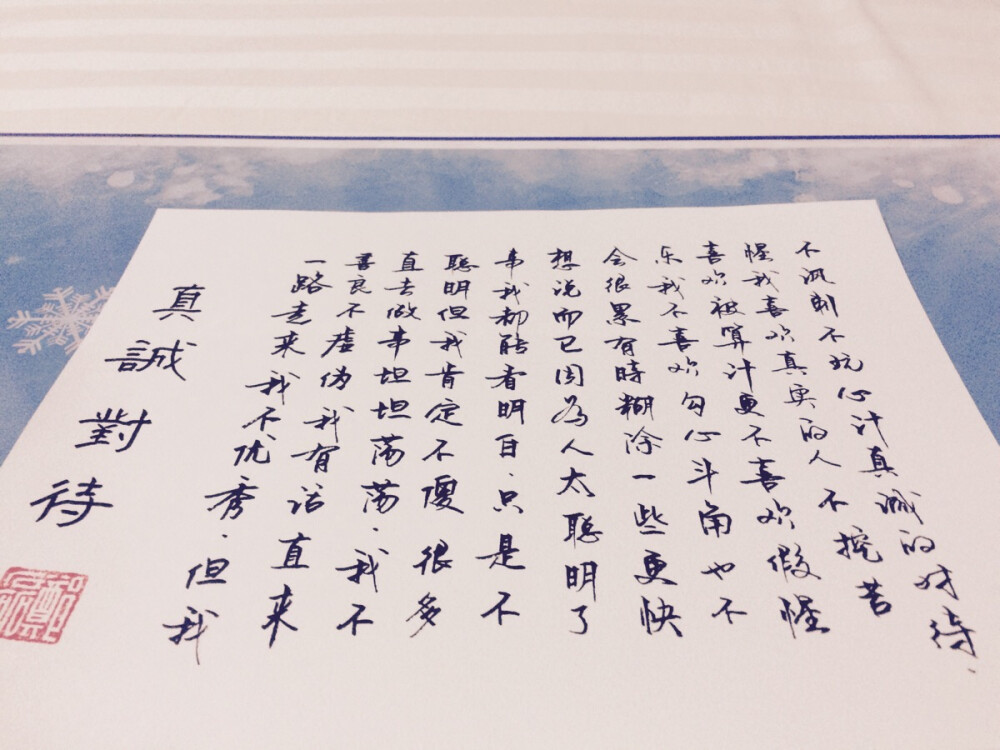 真誠對待
一路走来我不优秀.但我
善良不虚伪我有话直来
直去做事坦坦荡荡.我不
聪明但我肯定不傻很多
事我都能看明白.只是不
想说而已因為人太聪明了
会很累有時糊除一些更快
乐我不喜欢勾心斗角也不
喜欢被算计更不喜欢假惺
惺我喜欢真实的人不挖苦
不讽刺不玩心计真诚的对待.